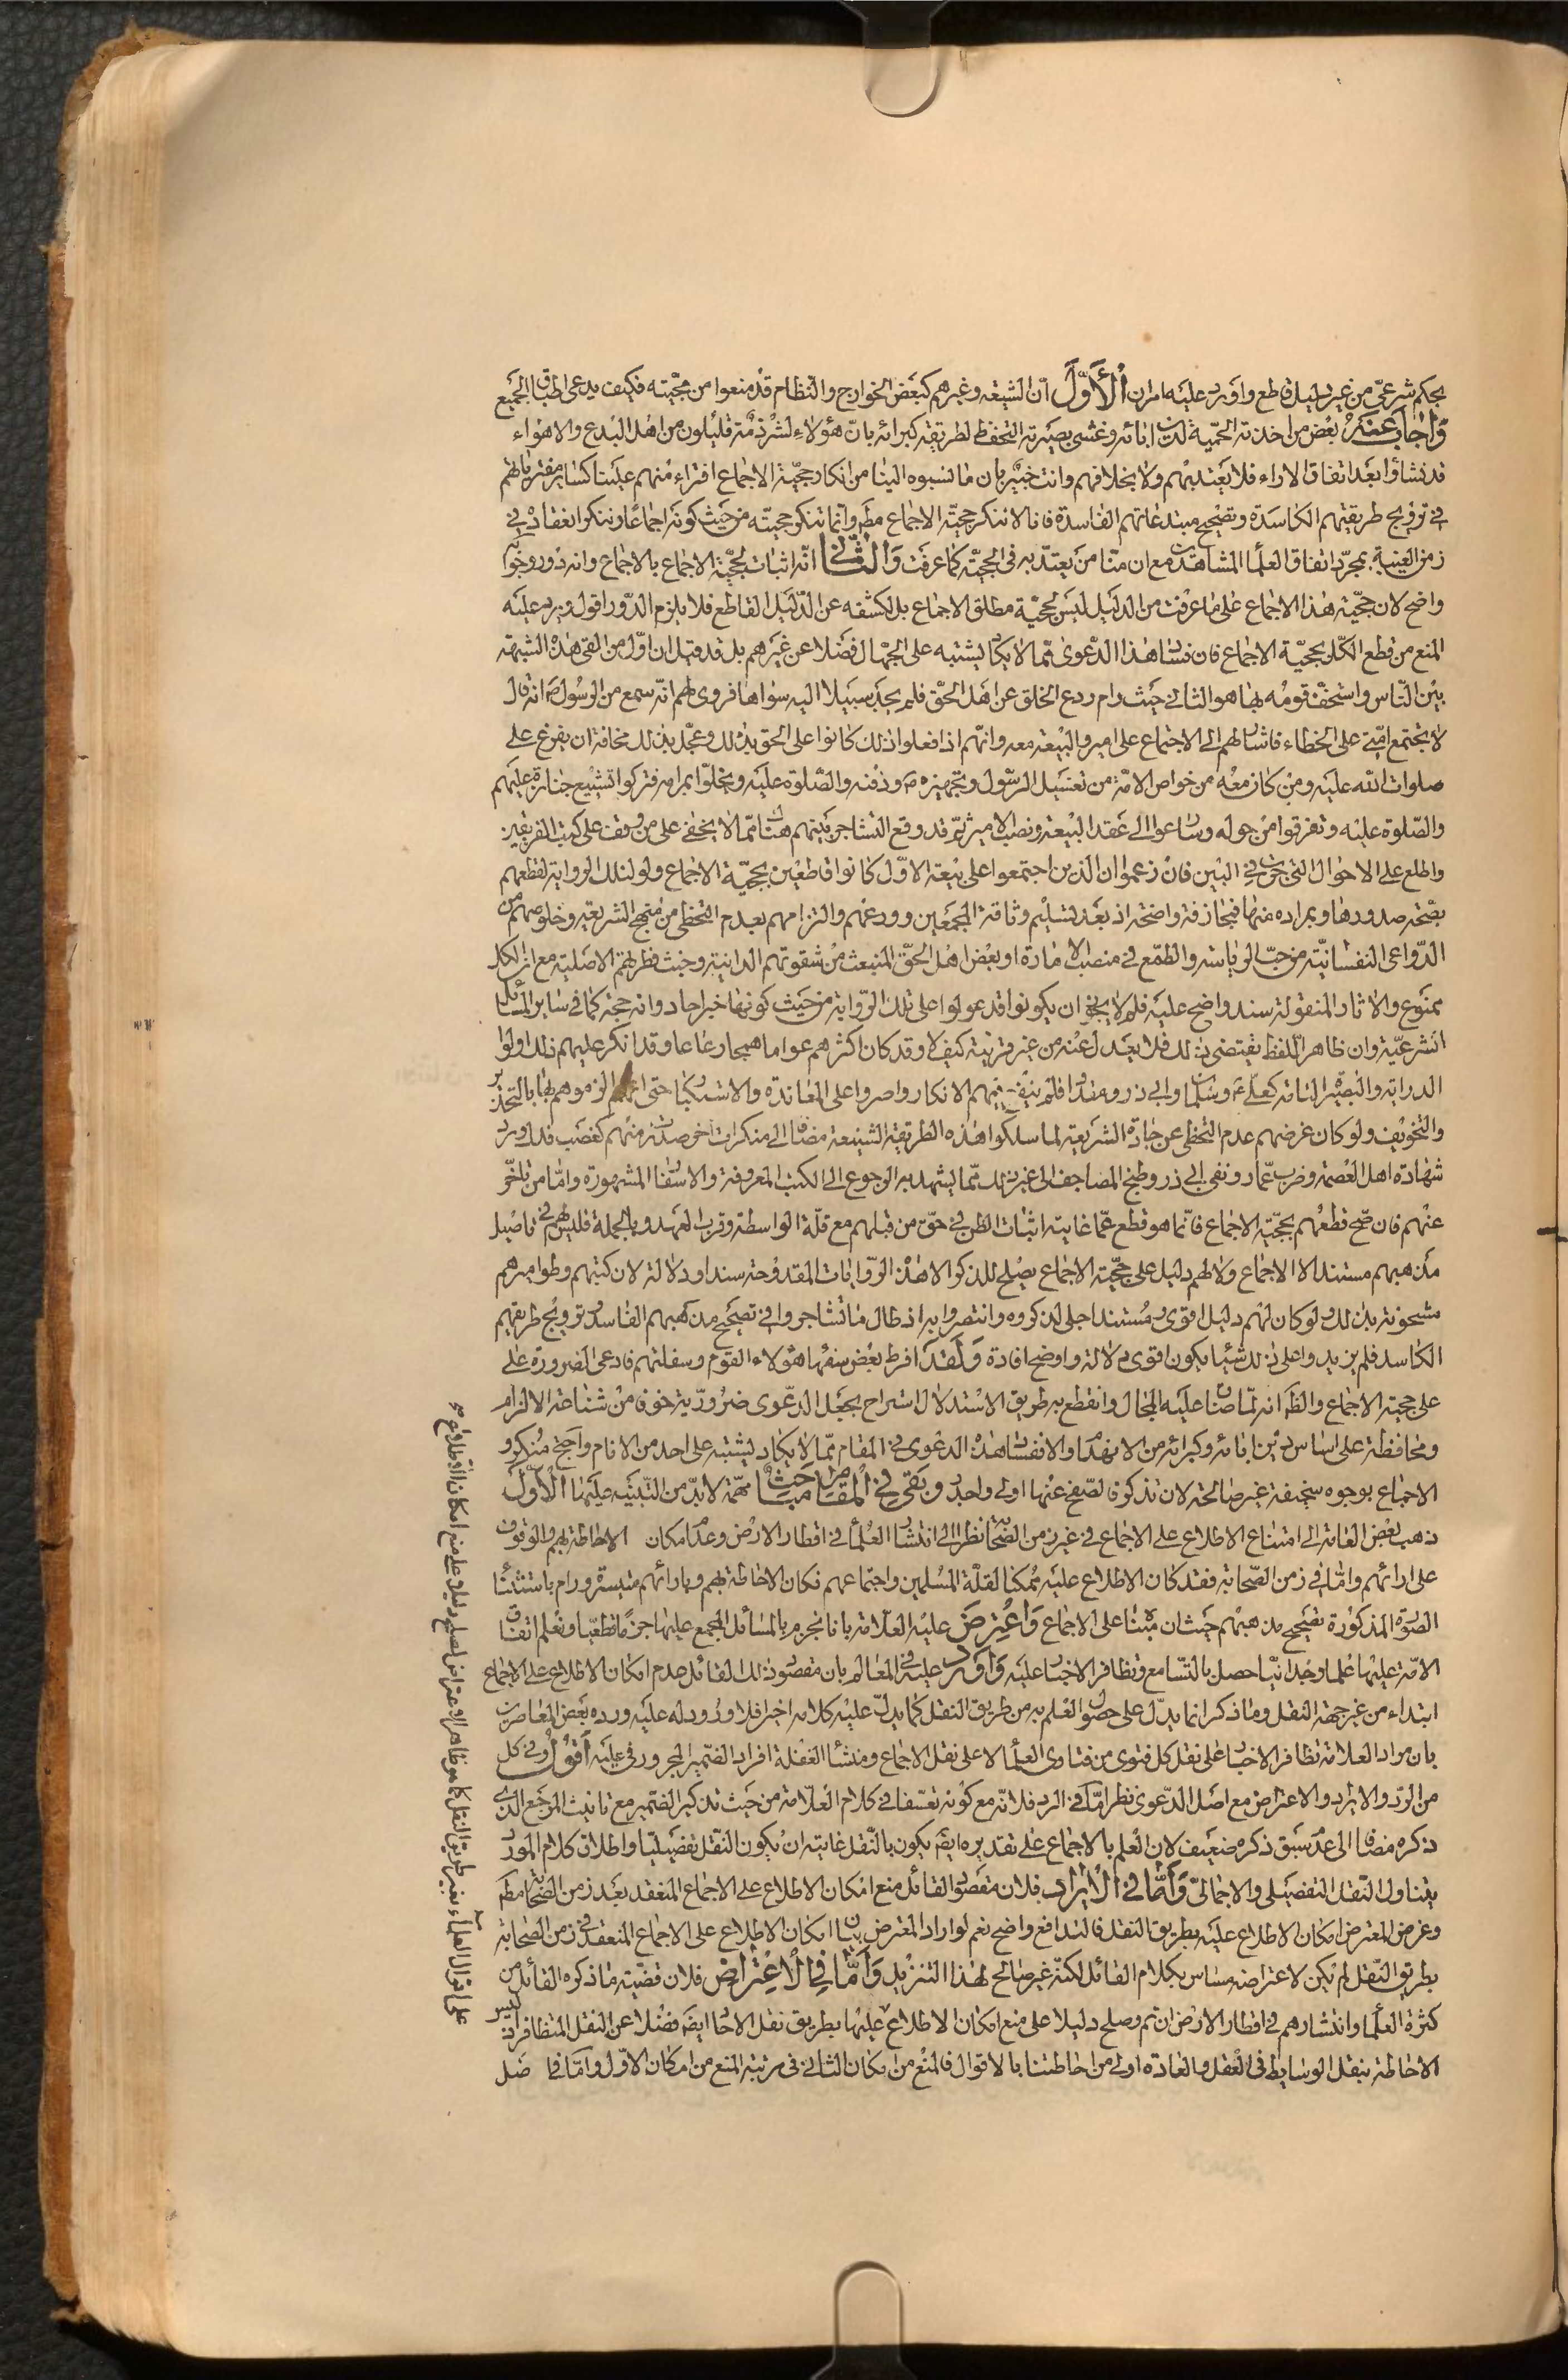 بحكم شرعىّ من غير دليل قاطع واورد عليه امران الأوّل ان الشيعة وغيرهم كبعض الخوارج والنظام قد منعوا من حجّيته فكيف يدعى اطباق الجميع
واجاب عنه بعض من اخذته الحميّة لدين ابائه وغشى بصيرته التحفظ لطريقة كبرائه بانّ هؤلاء لشرذمة قليلون من اهل البدع والاهواء
قد نشاؤا بعد اتفاق الاراء فلا يعتد بهم ولا بخلافهم وانت خبير بان ما نسبوه الينا من انكار حجيّة الاجماع افتراء منهم علينا كسائر مفترياتهم
فى ترويج طريقتهم الكاسدة وتصحيح مبتدعاتهم الفاسدة فانا لا ننكر حجيّة الاجماع مطم وانما ننكر حجيته من حيث كونه اجماعا وننكر انعقاده فى
زمن الغيبة بمجرّد اتفاق العلماء المشاهدين مع ان منّا من يعتدّ به فى الحجيّة كما عرفت والثانى انّه اثبات لحجيّة الاجماع بالاجماع وانه دور وجوابه
واضح لان حجّية هذا الاجماع على ما عرفت من الدليل ليس لحجيّة مطلق الاجماع بل لكشفه عن الدّليل القاطع فلا يلزم الدّور اقول ويرد عليه
المنع من قطع الكلّ بحجيّة الاجماع فان فساد هذا الدّعوى ممّا لا يكاد يشتبه على الجهال فضلا عن غيرهم بل قد قيل ان اوّل من القى هذه الشبهة
بين النّاس واستخفّ قومه بها هو الثانى حيث رام ردع الخلق عن اهل الحقّ فلم يجد سبيلا اليه سواها فروى لهم انّه سمع من الرسول ص انه قال
لا يجتمع امّتى على الخطاء فاشار لهم الى الاجتماع على امير والبيعة معه وانّهم اذا فعلوا ذلك كانوا على الحق بذلك وعجّل بذلك مخافة ان يفرغ على
صلوات الله عليه ومن كان معه من خواص الامّة من تغسيل الرّسول وتجهيزه ص ودفنه والصّلوة عليه ويخلّوا بمرامه فتركوا تشييع جنازة عليهم
والصّلوة عليه وتفرقوا من حوله وساعوا الى عقد البيعة ونصب الامير ثمّ قد وقع التشاجر بينهم هناك ممّا لا يخفى على من وقف على كتب الفريقين
واطلع على الاحوال التى جرت فى البين فان زعموا ان الذين اجتمعوا على بيعة الاوّل كانوا قاطعين بحجيّة الاجماع ولو لتلك الرواية لقطعهم
بصّحة صدورها وبمراده منها فمجازفة واضحة اذ بعد تسليم وثاقة المجمعين وورعهم والتزامهم بعدم التخطى من منهج الشريعة وخلوصهم من
الدّواعى النفسانيّة من حبّ الرياسة والطمع فى منصب الامارة او بغض اهل الحقّ المنبعث من شقوتهم الذاتية وخبث فطرتهم الاصلية مع ان الكلّ
ممنوع والاثار المنقولة سند واضح عليه فلم لا يجوز ان يكونوا قد عولوا على تلك الرّواية من حيث كونها خبر احاد وانه حجة كما فى ساير المسائل
الشرعيّة وان ظاهر اللفظ يقتضى ذلك فلا يعدل عنه من غير قرينة كيف لا وقد كان اكثرهم عواما همجا رعاعا وقد انكر عليهم ذلك اولوا
الدراية والبصيرة التامة كعلىّ ع وسلمان وابى ذر ومقداد فلم ينفع فيهم الانكار واصروا على المعاندة والاستكبار حتى انهم الزموهم بها بالتحذير
والتخويف ولو كان غرضهم عدم التخطى عن جادّة الشريعة لما سلكوا هذه الطريقة الشنيعة مضافا الى منكرات اخر صدرت منهم كغصب فدك ورد
شهادة اهل العصمة وضرب عمّار ونفى ابى ذر وطبخ المصاحف الى غير ذلك ممّا يشهد به الرجوع الى الكتب المعروفة والاسفار المشهورة وامّا من تاخّر
عنهم فان صّح قطعهم بحجيّة الاجماع فانّما هو قطع عمّا غايته اثبات الظن فى حقّ من قبلهم مع قلّة الواسطة وقرب العهد وبالجملة فليس لهم فى تاصيل
مذهبهم مستند الا الاجماع ولا لهم دليل على حجّية الاجماع يصلح للذكر الا هذه الرّوايات المقدوحة سندا ودلالة لان كتبهم وطواميرهم
مشحونة بذلك ولو كان لهم دليل اقوى ومستند اجلى لذكروه وانتصروا به اذ طال ما تشاجروا فى تصحيح مذهبهم الفاسد وترويج طريقتهم
الكاسد فلم يزيدوا على ذلك شيئا يكون اقوى دلالة واوضح افادة ولقد افرط بعض سفهاء هؤلاء القوم وسفلتهم فادعى الضرورة على
على حجية الاجماع والظّ انه لمّا ضاق عليه المجال وانقطع به طريق الاستدلال استراح بجعل الدعوى ضروريّة خوفا من شناعة الالزام
ومحافظة على اساس دين ابائه وكبرائه من الانهدام والا ففساد هذه الدعوى فى المقام ممّا لا يكاد يشتبه على احد من الانام واحتج منكرو
الاجماع بوجوه سخيفة غير صالحة لان تذكر فالصفح عنها اولى واحرى وبقى فى المقام مباحث مهمّة لا بدّ من التنبيه عليها الأوّل
ذهب بعض العامة الى امتناع الاطلاع على الاجماع فى غير زمن الصّحابة نظرا الى انتشار العلماء فى اقطار الارض وعدم امكان الاحاطة بهم والوقوف
على ارائهم وامّا فى زمن الصّحابة فقد كان الاطلاع عليه ممكنا لقلّة المسلمين واجتماعهم فكان الاحاطة بهم وبارائهم متيسّرة ورام باستثناء
الصورة المذكورة تصحيح مذهبهم حيث ان مبناه على الاجماع واعترض عليه العلامة بانا نجزم بالمسائل المجمع عليها جزمًا قطعيّا ونعلم اتفاق
الامّة عليها علما وجدانيّا حصل بالتّسامع وتظافر الاخبار عليه واورد عليه فى المعالم بان مقصود ذلك القائل عدم امكان الاطلاع على الاجماع
ابتداء من غير جهة النقل وما ذكر انما يدلّ على حصول العلم به من طريق النقل كما يدلّ عليه كلامه اخيرا فلا ورود له عليه وردّه بعض المعاصرين
بان مراد العلامة تظافر الاخبار على نقل كل فتوى من فتاوى العلماء لا على نقل الاجماع ومنشأ الغفلة افراد الضمير المجرور فى عليه أقول وفى كل
من الردّ والايراد والاعتراض مع اصل الدّعوى نظر امّا فى الرد فلانّه مع كونه تعسّفا فى كلام العلّامة من حيث تذكير الضّمير مع تانيث المرجع الذى
ذكره مضافا الى عدم سبق ذكره ضعيف لان العلم بالاجماع على تقديره ايضَ يكون بالنّقل غايته ان يكون النّقل تفصيليّا واطلاق كلام المورد
يتناول النّقل التفصيلى والاجمالىّ وأمّا فى الايراد فلان مقصود القائل منع امكان الاطلاع على الاجماع المنعقد بعد زمن الصّحابة مطم
وغرض المعترض امكان الاطلاع عليه بطريق النقل فالتدافع واضح نعم لو اراد المعترض بيان امكان الاطلاع على الاجماع المنعقد فى زمن الصّحابة
بطريق النّقل لم يكن لاعتراضه مساس بكلام القائل لكنّه غير صالح لهذا التنزيل وأمّا فى الاعتراض فلان قضيّة ما ذكره القائل من
كثرة العلماء وانتشارهم فى اقطار الارض ان تم وصلح دليلا على منع امكان الاطلاع عليها بطريق نقل الاحاد ايضَ فضلا عن النقل المتظافر اذ ليس
الاحاطة بنقل الوسايط فى العقل والعادة اولى من احاطتنا بالاقوال فالمنع من امكان الثانى فى مرتبة المنع من امكان الاوّل وامّا فى اصل
على اقوال العلماء بغير طريق النقل كما هو ظاهر الاعتراض لصلح دليلا على منع امكان الاطلاع